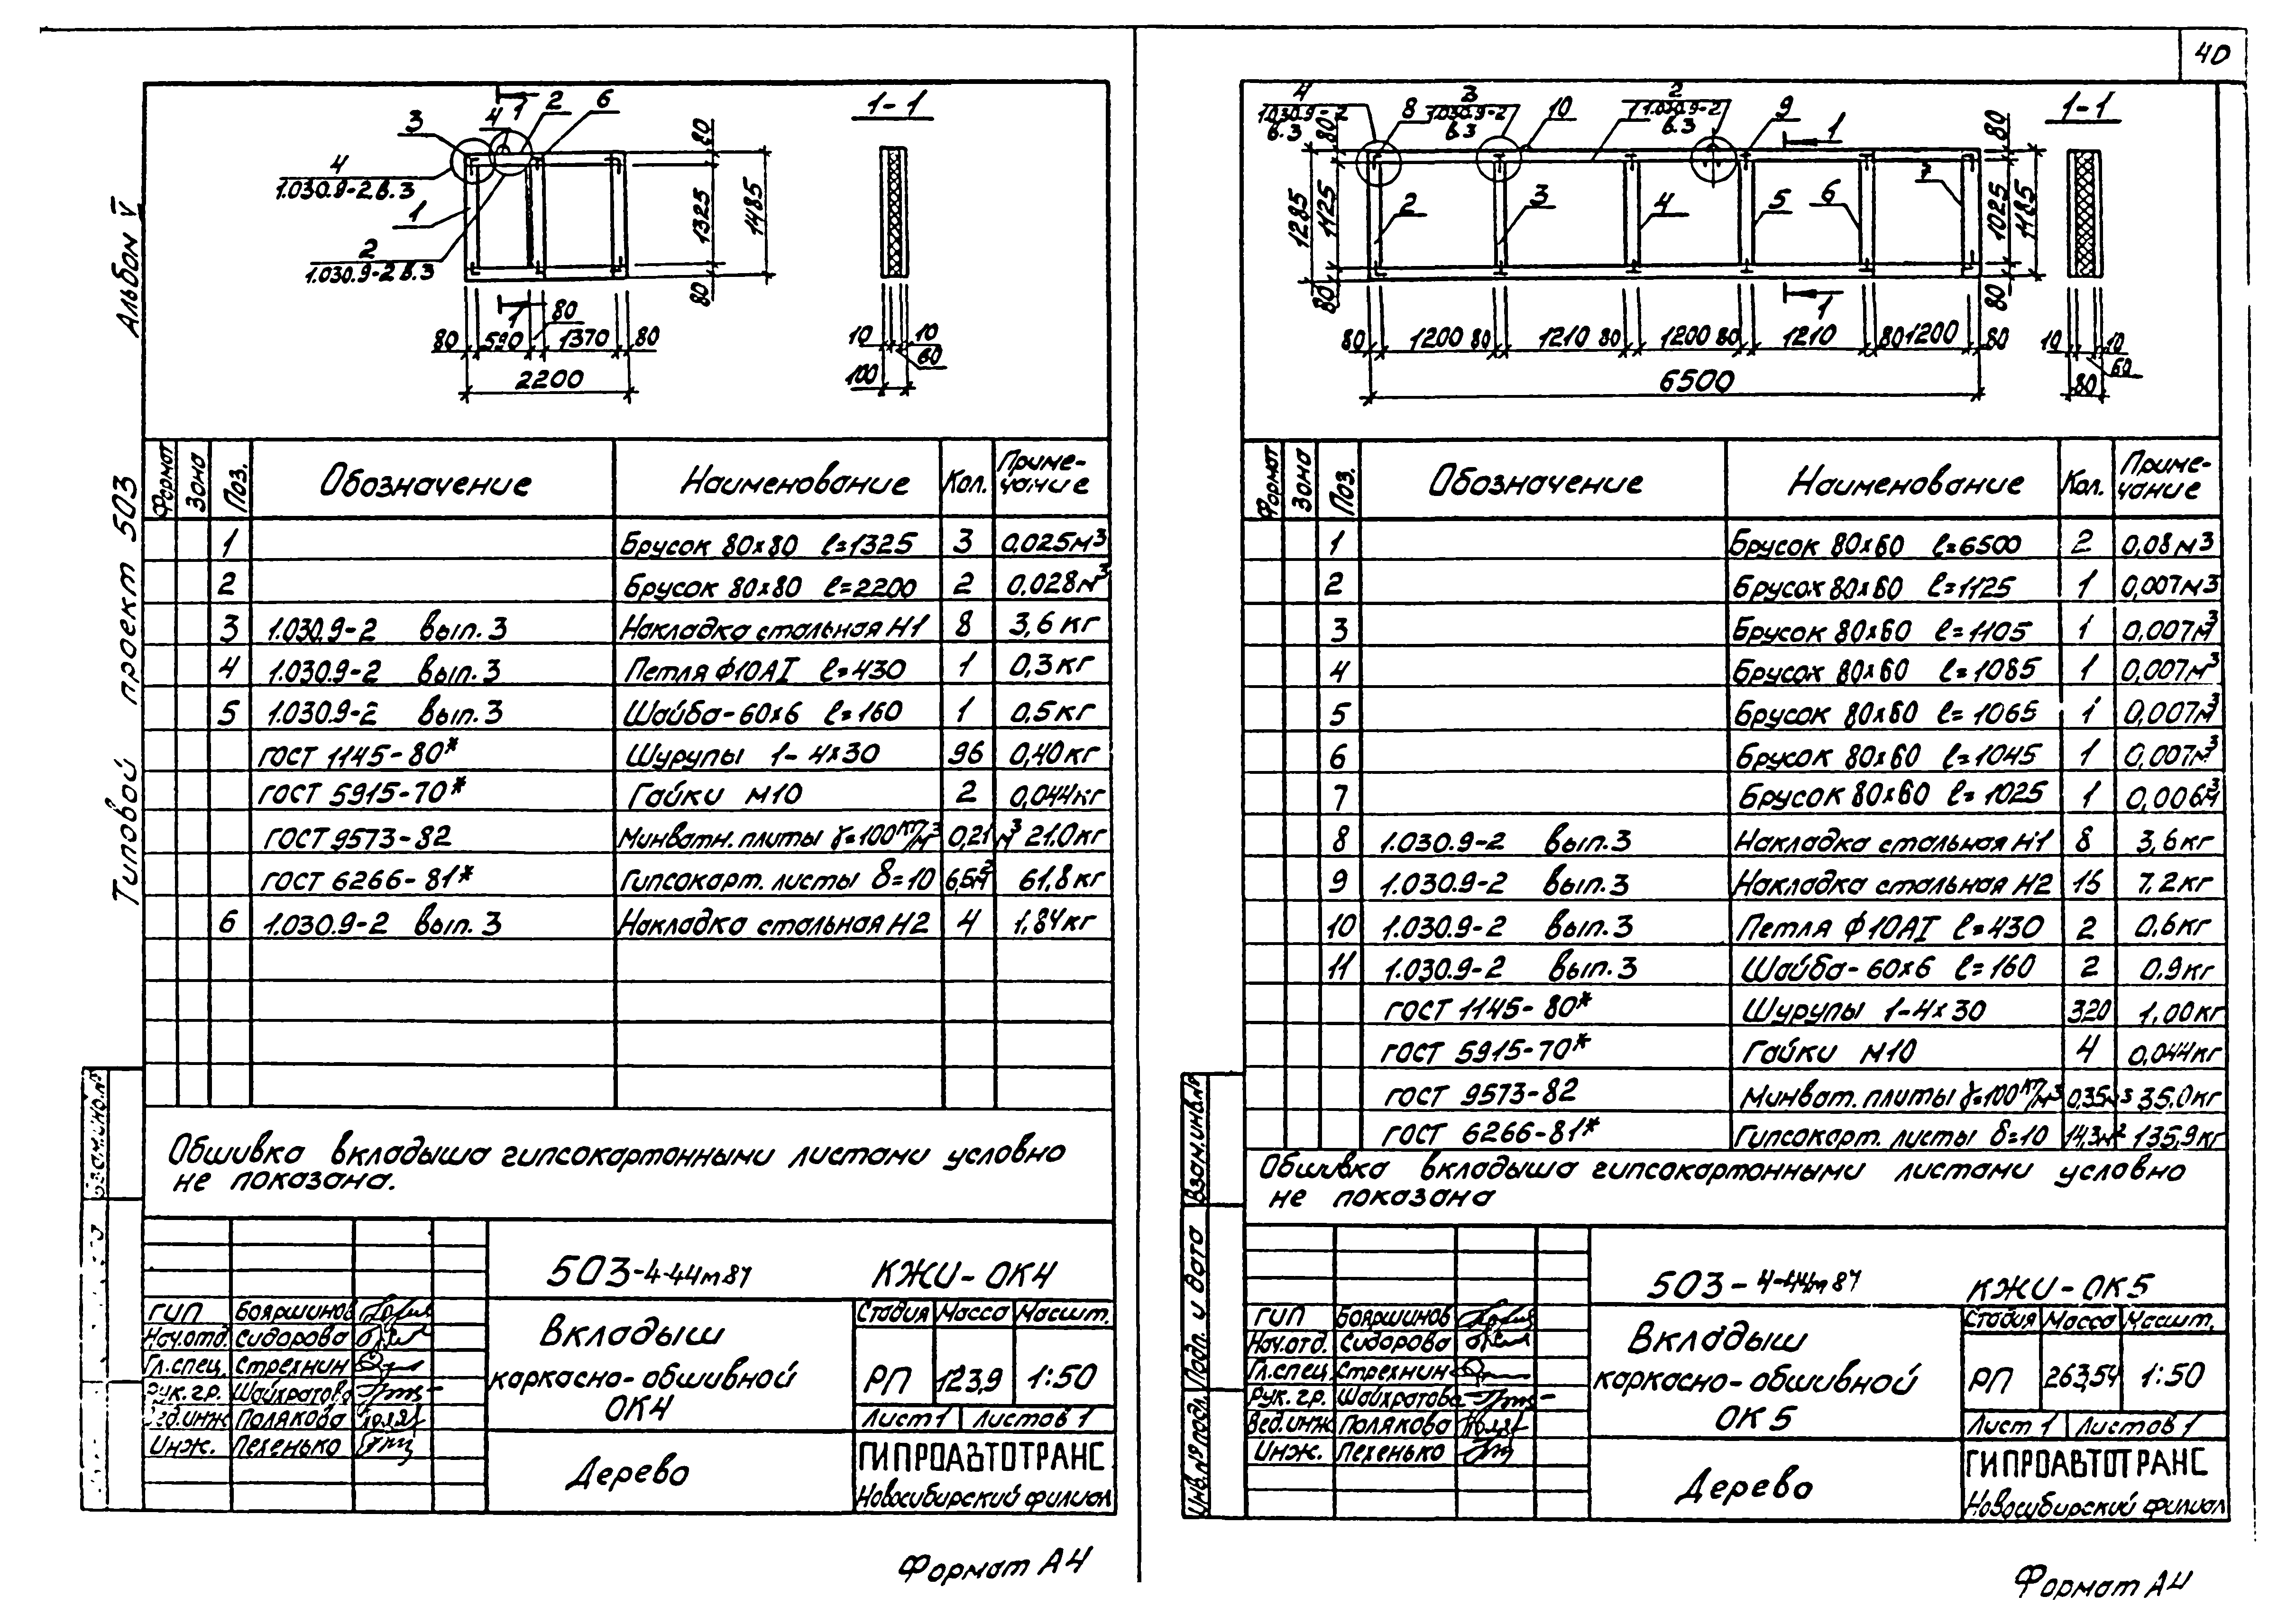 40
Альбом V
Типовой проект 503
3
4
1
2
6
1-1
4
1.030.9-2 в.3
1
2
1.030.9-2 в.3
80
1325
1485
80
1
80
80 590 1370 80
2200
10 10
60
100
Формат Зона Поз. Обозначение Наименование Кол. Приме-
чание
1 Брусок 80х80 ℓ=1325 3 0,025м³
2 Брусок 80х80 ℓ=2200 2 0,028м³
3 1.030.9-2 вып. 3 Накладка стальная Н1 8 3,6 кг
4 1.030.9-2 вып. 3 Петля Ф10АI ℓ=430 1 0,3 кг
5 1.030.9-2 вып. 3 Шайба-60х6 ℓ=160 1 0,5 кг
ГОСТ 1145-80* Шурупы 1-4х30 96 0,40кг
ГОСТ 5915-70* Гайки М10 2 0,044кг
ГОСТ 9573-82 Минватн. плиты γ=100кг/м³ 0,21м³ 21.0кг
ГОСТ 6266-81* Гипсокарт. листы δ=10 6,5м² 61,8 кг
6 1.030.9-2 вып. 3 Накладка стальная Н2 4 1,84кг
Обшивка вкладыша гипсокартонными листами условно
не показана.
Взам.инв.№
503-4-44м87 КЖИ-ОК4
ГИП Бояршинов
Нач.отд. Сидорова
Гл.спец. Стрехнин
Рук.гр. Шайхратова
Вед.инж Полякова
Инж. Пехенько
Вкладыш
каркасно-обшивной
ОК4
Стадия Масса Масшт.
РП 123,9 1:50
Лист 1 Листов 1
Дерево
ГИПРОАВТОТРАНС
Новосибирский филиал
Формат А4
4
1.030.9-2
в.3
8
3
1.030.9-2
в.3
10
2
1.030.9-2
в.3
1
9
1
1-1
80
1285
1125
80
2 3 4 5 6 7
80
1025
1185
80
1
80 1200 80 1210 80 1200 80 1210 80 1200 80
6500
10 10
60
80
Формат Зона Поз. Обозначение Наименование Кол. Приме-
чание
1 Брусок 80х60 ℓ=6500 2 0,08 м3
2 Брусок 80х60 ℓ=1125 1 0,007м3
3 Брусок 80х60 ℓ=1105 1 0,007м³
4 Брусок 80х60 ℓ=1085 1 0,007м³
5 Брусок 80х60 ℓ=1065 1 0,007м³
6 Брусок 80х60 ℓ=1045 1 0,007м³
7 Брусок 80х60 ℓ=1025 1 0,006м³
8 1.030.9-2 вып.3 Накладка стальная Н1 8 3,6кг
9 1.030.9-2 вып.3 Накладка стальная Н2 16 7,2 кг
10 1.030.9-2 вып.3 Петля Ф10АI ℓ=430 2 0.6кг
11 1.030.9-2 вып.3 Шайба-60х6 ℓ=160 2 0.9кг
ГОСТ 1145-80* Шурупы 1-4х30 320 1,00кг
ГОСТ 5915-70* Гайки М10 4 0,044кг
ГОСТ 9573-82 Минват. плиты γ=100кг/м³ 0,35м3 35.0кг
ГОСТ 6266-81* Гипсокарт. листы δ=10 14,3м² 135,9кг
Обшивка вкладыша гипсокартонными листами условно
не показана
Взам.инв.№
Подп. и дата
Инв.№ подл.
503-4-44м87 КЖИ-ОК5
ГИП Бояршинов
Нач.отд. Сидорова
Гл.спец Стрехнин
Рук. гр. Шайхратова
Вед.инж Полякова
Инж. Пехенько
Вкладыш
каркасно-обшивной
ОК 5
Стадия Масса Масшт.
РП 263,54 1:50
Лист 1 Листов 1
Дерево
ГИПРОАВТОТРАНС
Новосибирский филиал
Формат А4